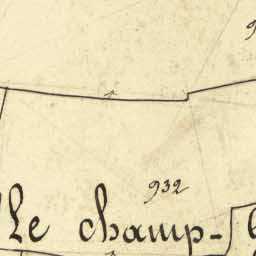 932
Le champ-